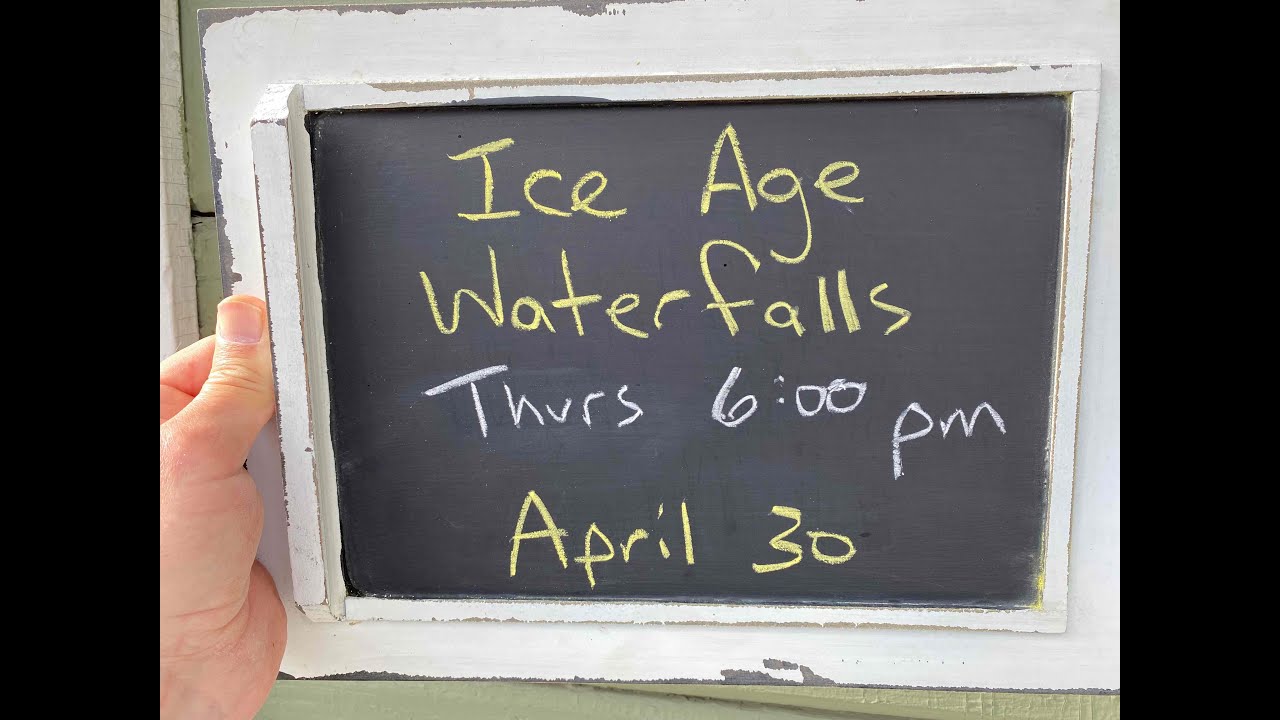 Ice Age
Waterfalls
Thurs 6:00 pm
April 30